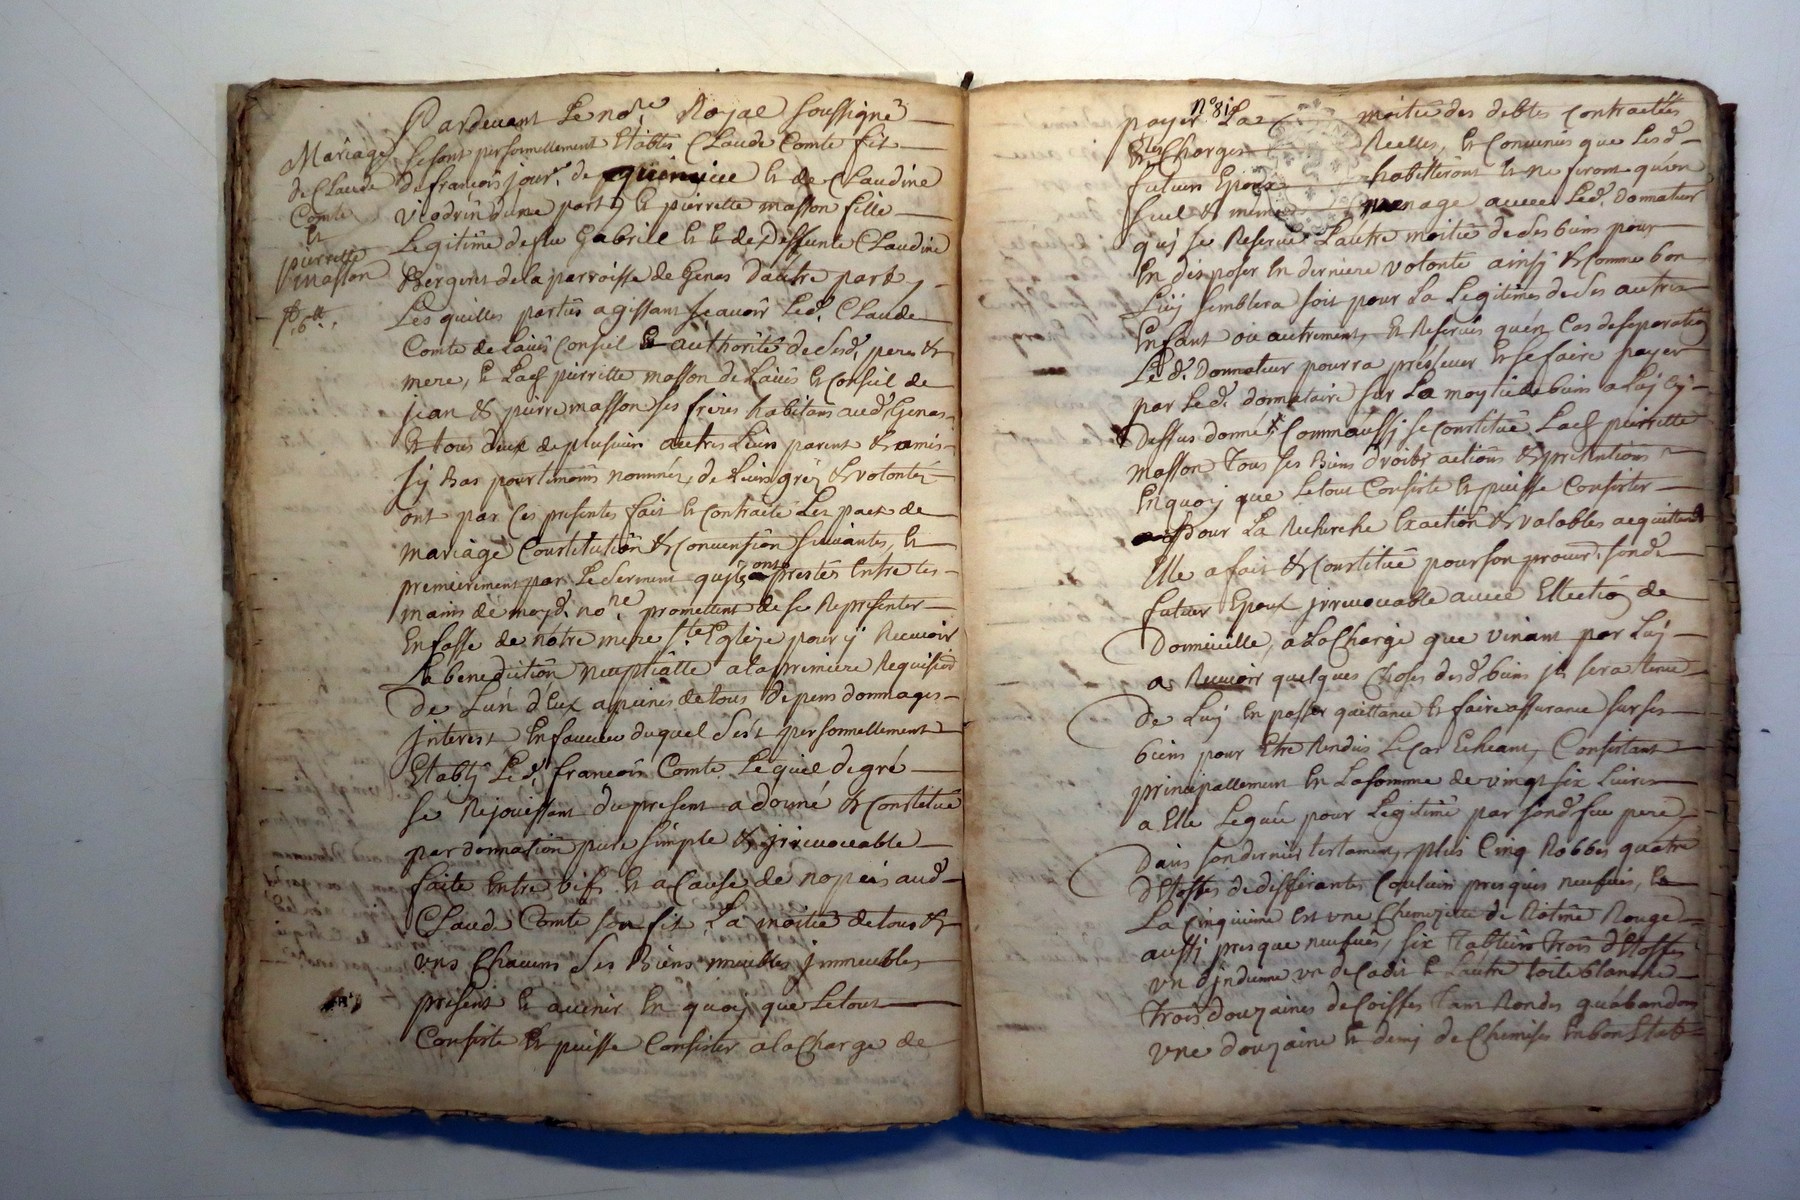 Pardevant Le no.re Royal soussigné
Mariage
de Claude
Comte
et
pierrette
masson
Se sont personnellement Etablis Claude Comte fils
de francois jour.r de et de Claudine
d'une part, et pierrette masson fille
Legitime de feu Gabriel et de Deffunte Claudine
Bergeret de la parroisse de Genas d'autre part,
Lesquelles parties agissant sçavoir Led. Claude
Comte de L'avis Conseil Et authorité de Sesd. pere &
mere, & Lad. pierrette masson de L'avis & Conseil de
jean & pierre masson ses freres habitans aud. Genas
Et tous deux de plusieurs autres Leurs parent & amis
sy bas pour temoins nommés, de Leurs gréz & volonté
ont par Ces presentes fait & Contracté Les pact de
mariage Constitution & Convention suivantes, Et
premierement par Le Serment qu'ils ont prestés Entre les
mains de moyd. no.re promettent de se Representer
En fasse de notre mere S.te Eglize pour y Recevoir
La benediction nuptialle a la premiere Requisition
De L'un d'Eux a peines de tous depens dommages
interest En faveur duquel S'est personnellement
Etably Led. francois Comte Lequel de gré
se Rejouissant du present a donné & Constitué
par donnation pure simple & jrrevocable
faite Entre vifs Et a Cause de nopces aud.
Claude Comte son fils La moitié de tous &
uns Chacuns Ses Biens meubles jmmeubles
present & avenir En quoy que Le tout
Consiste Et puisse Consister a la Charge de
N.o 81
payer La moitié des debtes Contractées
Et Charges Reelles, Et Convenus que Lesd.
futurs Epoux habitteront & ne feront qu'un
seul & meme menage avec Led. Donnateur
quj se Reserve L'autre moitié de ses biens pour
En disposer En derniere volonté ainsj & Comme bon
Luy semblera soit pour La Legitimes de Ses autres
Enfant ou autrement, Et Reservés qu'en Cas de separation
Led. Donnateur pourra prellever Et se faire payer
par Led. donnataire sur La moytié de biens a Luj Cy
Dessus donnés, Comm'aussj se Constitue Lad. pierrette
masson Tous ses Biens droits actions & pretentions
En quoy que Le tout Consiste Et puisse Consister
Pour La Recherche Exaction & valables acquittement
Elle a fait & Constitué pour son procur.r sond.
futur Epoux jrrevocable avec Ellection de
Domicille, a La Charge que venant par Luj
a Recevoir quelques Choses desd. biens jl sera tenu
De Luj En passer quittance & faire assurance sur ses
biens pour Etre Rendus Le Cas Echeant, Consistant
principallement En La somme de vingt six Livres
a Elle Leguée pour Legitime par sond. feu pere
Dans son dernier testament, plus Cinq Robbes quatre
D'Etoffes de differantes Couleurs presques neufves, Et
La Cinquieme Est vne Chemizette de Ratine Rouge
aussj presque neufve, six Tabliers trois d'Etoffes
vn d'jndienne vn de Cadis & L'autre toile blanche
trois douzaines de Coiffes tant Rondes qu'abandons
Vne douzaine & demj de Chemises En bon Etat